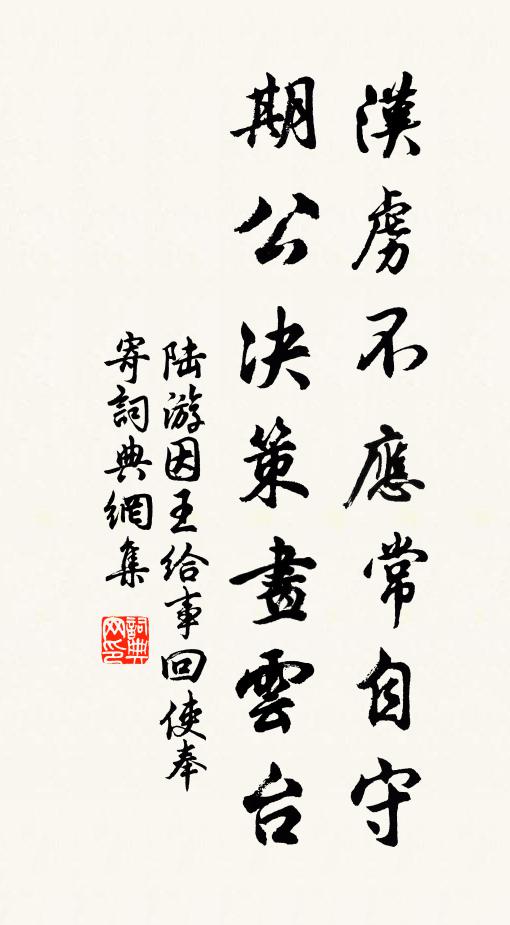 漢虜不應常自守
期公決策畫雲台
陸游因王給事回使奉
寄詞典網集
詞典網印